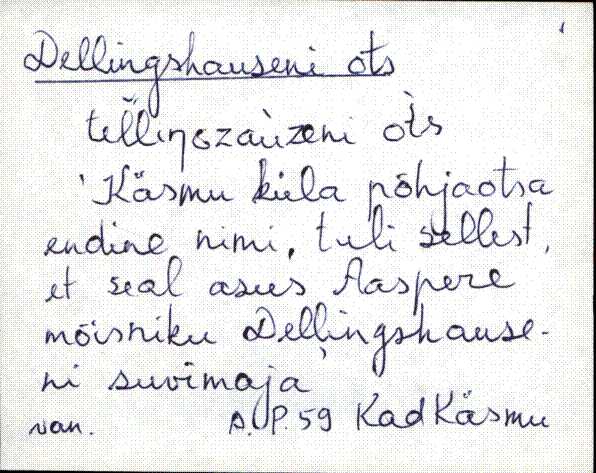 Dellingshauseni ots
telliŋozaùzeni òts
'Käsmu küla põhjaotsa
endine nimi, tuli sellest,
et seal asus Aaspere
mõisniku Dellingshause-
ni suvimaja
van. A. P. 59 Kad Käsmu